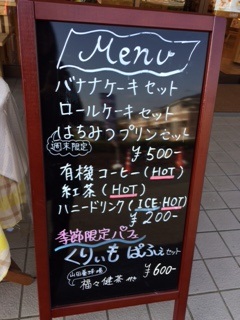 Menu
バナナケーキセット
ロールケーキセット
はちみつプリンセット
週末限定
¥500-
有機コーヒー(HOT)
紅茶(HOT)
ハニードリンク(ICE・HOT)
¥200-
季節限定パフェ
くりいも ぱふぇセット
山田養蜂場
福々健茶付 ¥600-